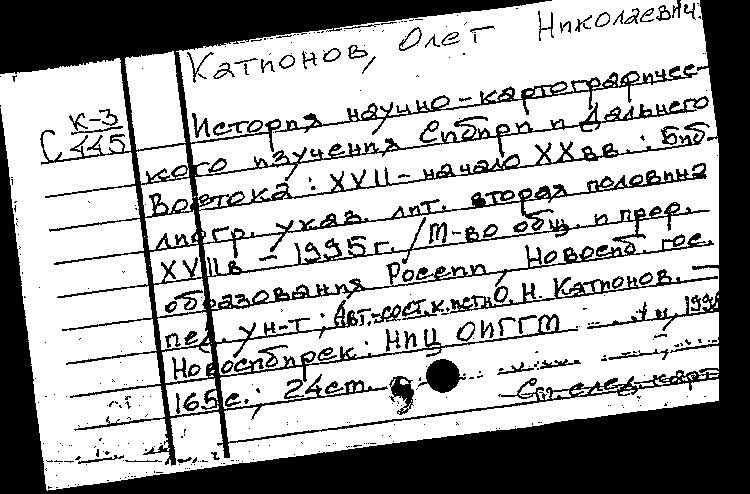 Катионов, Олег Николаевич.
С К-3/445
История научно-картографичес-
кого изучения Сибири и Дальнего
Востока: XVII - начало XX вв.: Биб-
лиогр. указ. лит. вторая половина
XVIIв - 1995 г. / М-во общ. и проф.
образования России, Новосиб. гос.
пед. ун-т; Авт.-сост. к.ист.н О. Н. Катионов. —
Новосибирск: НИЦ ОИГГМ
165с.; 24см.
См. след. карт